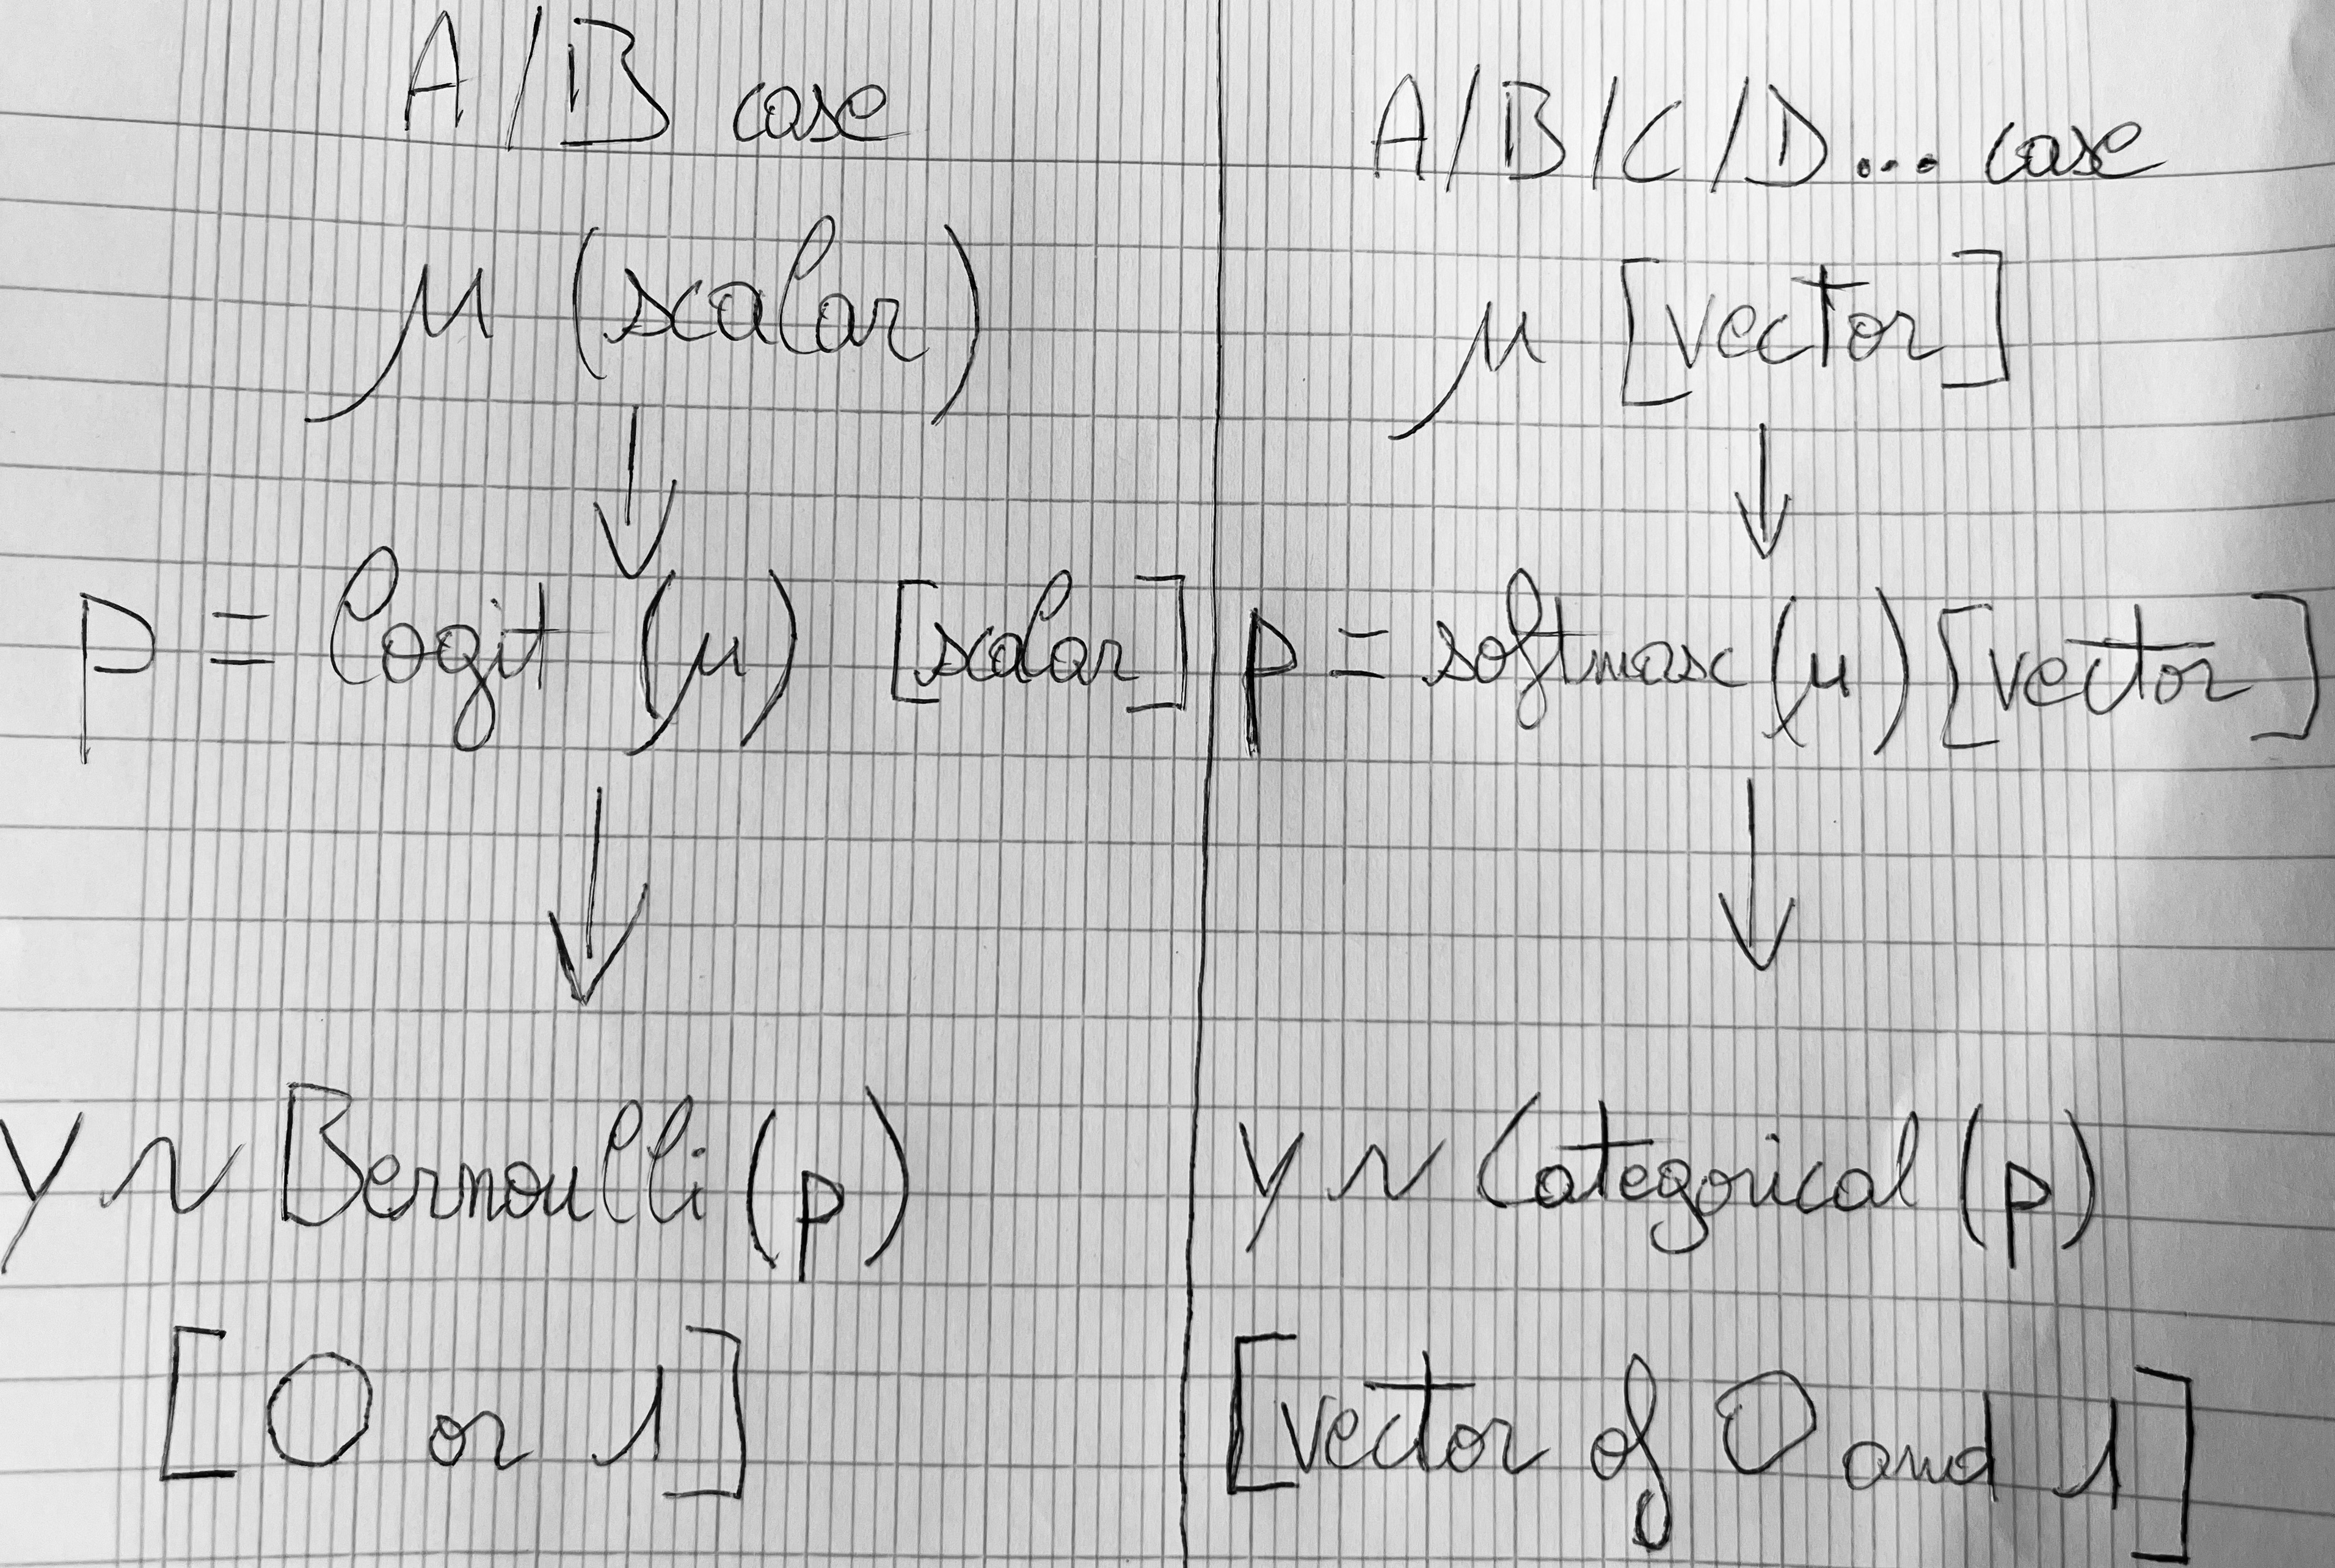 A/B case
μ (scalar)
p = logit (μ) [scalar]
Y ~ Bernoulli (p)
[0 or 1]
A/B/C/D... case
μ [vector]
p = softmax (μ) [vector]
Y ~ Categorical (p)
[vector of 0 and 1]